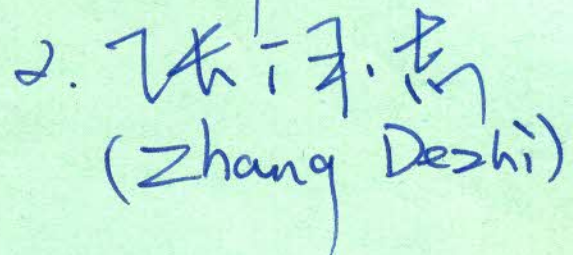 2. 张得志
(Zhang Dezhi)